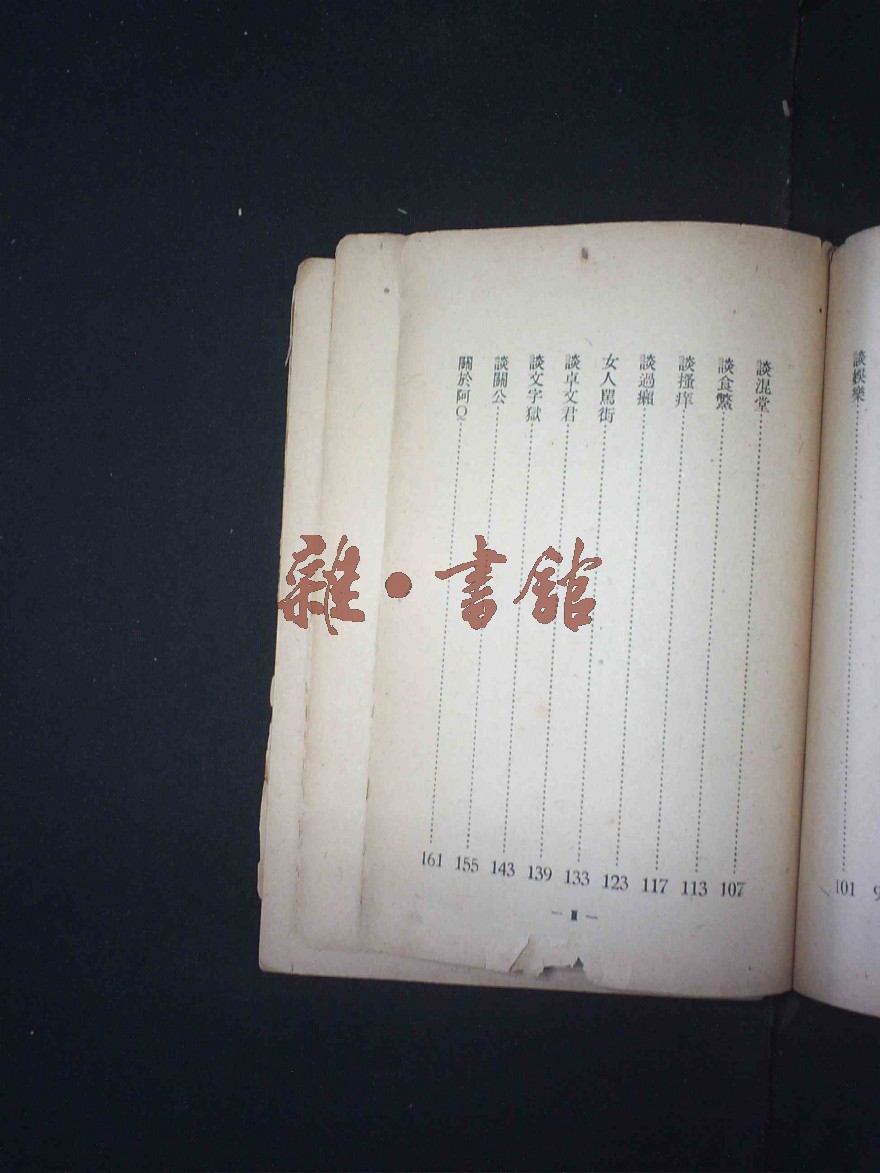 談娛樂 101
談混堂……107
談食……113
談搔痒……117
談過癮……123
女人罵街……133
談卓文君……139
談文字獄……143
談關公……155
關於阿Q……161
— II —
雜·書館